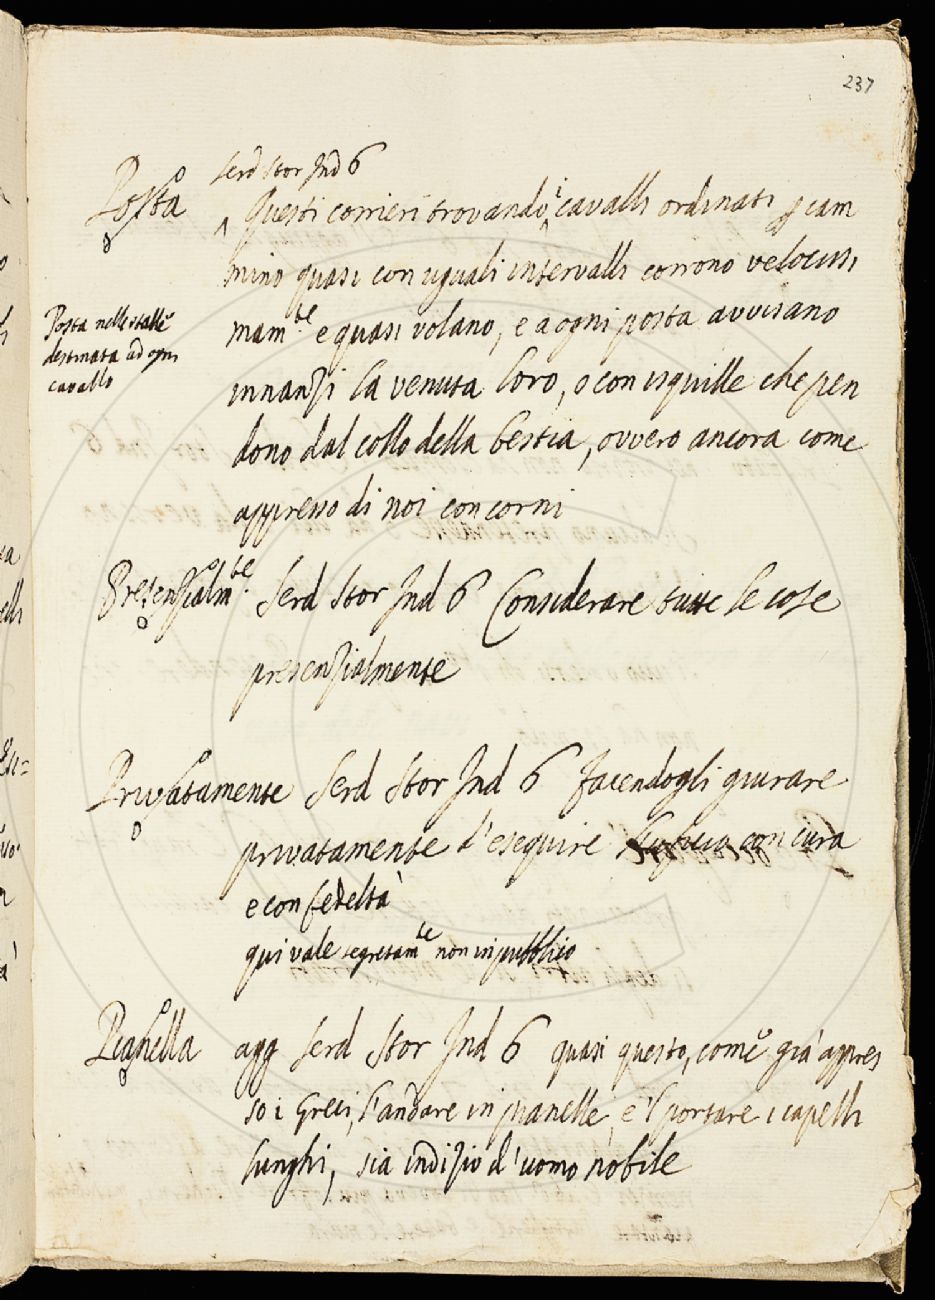 237
Posta Serd Stor Ind 6
Questi corrieri trovando i cavalli ordinati p cam
mino quasi con uguali intervalli corrono velocissi
mam.te e quasi volano, e a ogni posta avvisano
innanzi la venuta loro, o con isquille che pen
dono dal collo della bestia, ovvero ancora come
appresso di noi con corni
Posta nelle stalle è
destinata ad ogni
cavallo
Presenzialm.te Serd Stor Ind 6 Considerare tutte le cose
presenzialmente
Privatamente Serd Stor Ind 6 facendogli giurare
privatamente d'eseguire con cura
e con fedeltà
qui vale segretam.te non in pubblico
Pianella agg Serd Stor Ind 6 quasi questo, come già appres
so i Greci, l'andare in pianelle, e 'l portare i capelli
lunghi, sia indizio d'uomo nobile